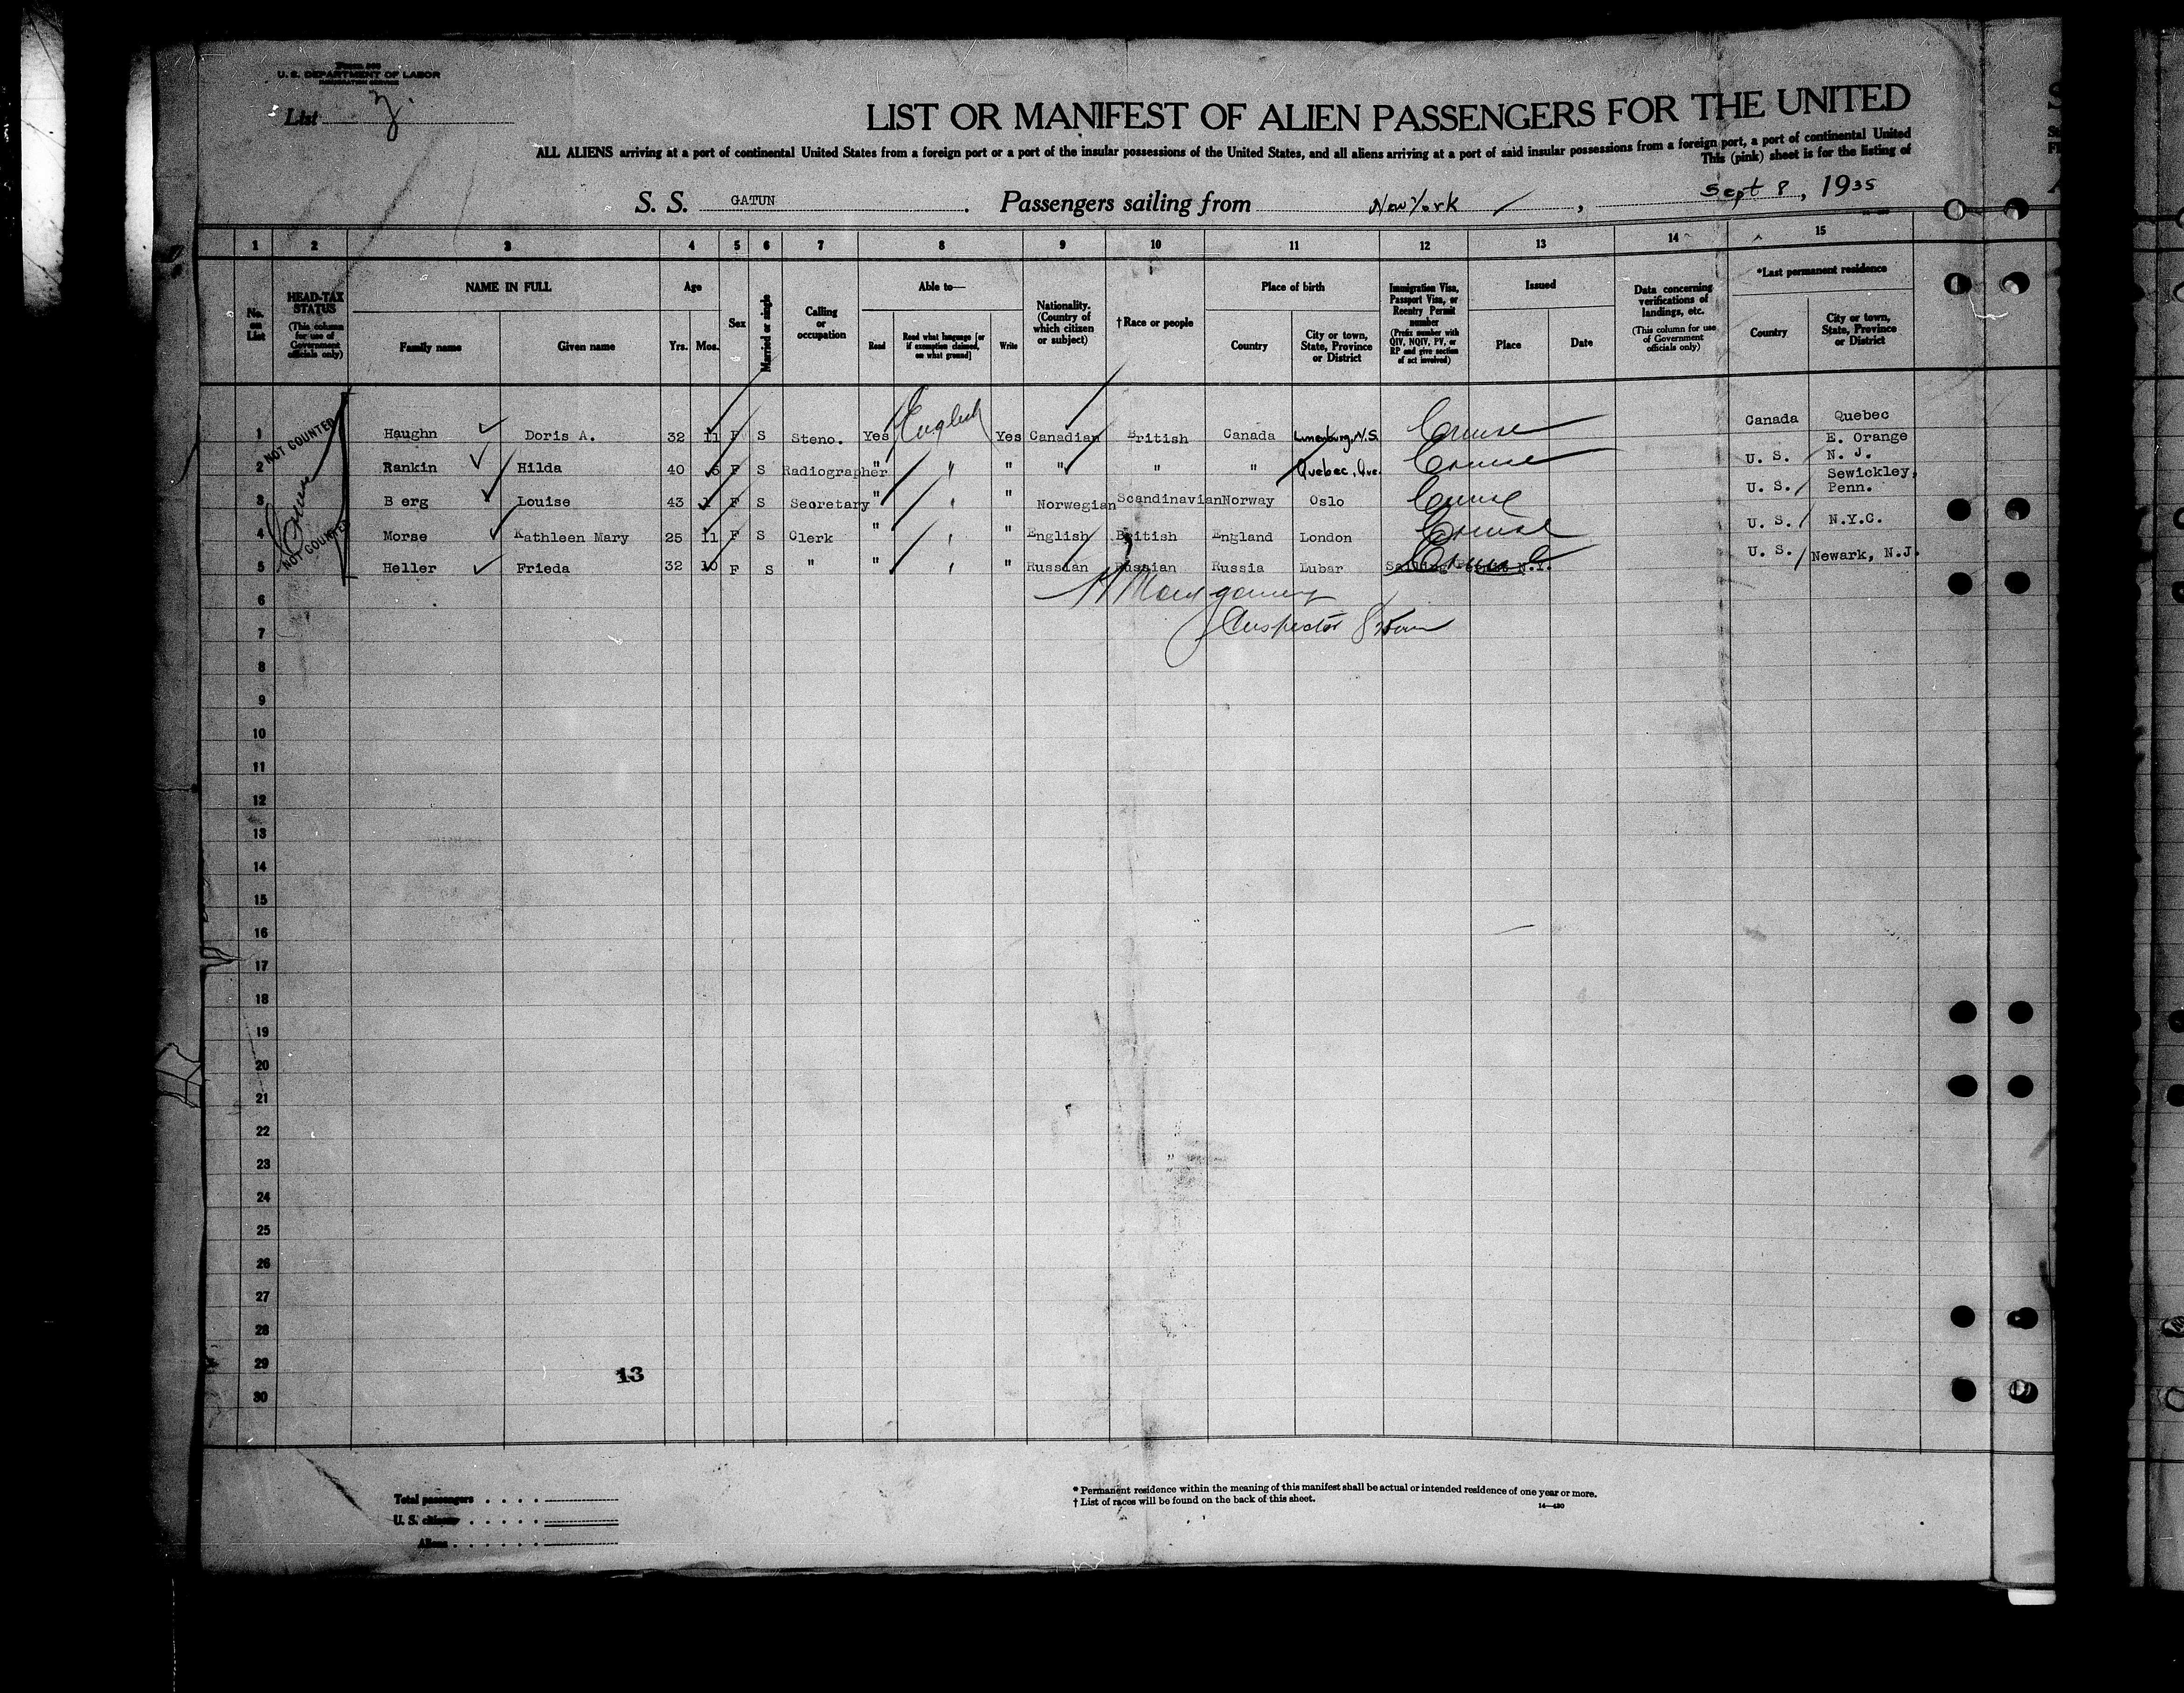 U. S. DEPARTMENT OF LABOR
List
LIST OR MANIFEST OF ALIEN PASSENGERS FOR THE UNITED
ALL ALIENS arriving at a port of continental United States from a foreign port or a port of the insular possessions of the United States, and all aliens arriving at a port of said insular possessions from a foreign port, a port of continental United
This (pink) sheet is for the listing of
S. S. GATUN. Passengers sailing from New York, Sept 8, 1935
1 2 3 4 5 6 7 8 9 10 11 12 13 14 15
No. on List
HEAD-TAX STATUS (This column for use of Government officials only)
NAME IN FULL
Family name Given name
Age
Yrs. Mos.
Sex
Married or single
Calling or occupation
Able to—
Read Read what language [or if exemption claimed, on what ground] Write
Nationality. (Country of which citizen or subject)
†Race or people
Place of birth
Country City or town, State, Province or District
Immigration Visa, Passport Visa, or Reentry Permit number (Prefix number with QIV, NQIV, PV, or RP and give section of act involved)
Issued
Place Date
Data concerning verifications of landings, etc. (This column for use of Government officials only)
*Last permanent residence
Country City or town, State, Province or District
NOT COUNTED
Cruise
NOT COUNTED
1 Haughn Doris A. 32 11 F S Steno. Yes English Yes Canadian British Canada Lunenburg, N.S. Cruise Canada Quebec
2 Rankin Hilda 40 5 F S Radiographer " " " " " " Quebec, Que. Cruise U. S. E. Orange N. J.
3 B erg Louise 43 1 F S Secretary " " " Norwegian Scandinavian Norway Oslo Cruise U. S. Sewickley, Penn.
4 Morse Kathleen Mary 25 11 F S Clerk " " " English British England London Cruise U. S. N.Y.C.
5 Heller Frieda 32 10 F S " " " " Russian Russian Russia Lubar Sailing Permit N.Y. Cruise U. S. Newark, N.J.
6
Montgomery
7
Inspector
8
9
10
11
12
13
14
15
16
17
18
19
20
21
22
23
24
25
26
27
28
29
13
30
Total passengers
U. S. citizens
Aliens
* Permanent residence within the meaning of this manifest shall be actual or intended residence of one year or more.
† List of races will be found on the back of this sheet.
14—430